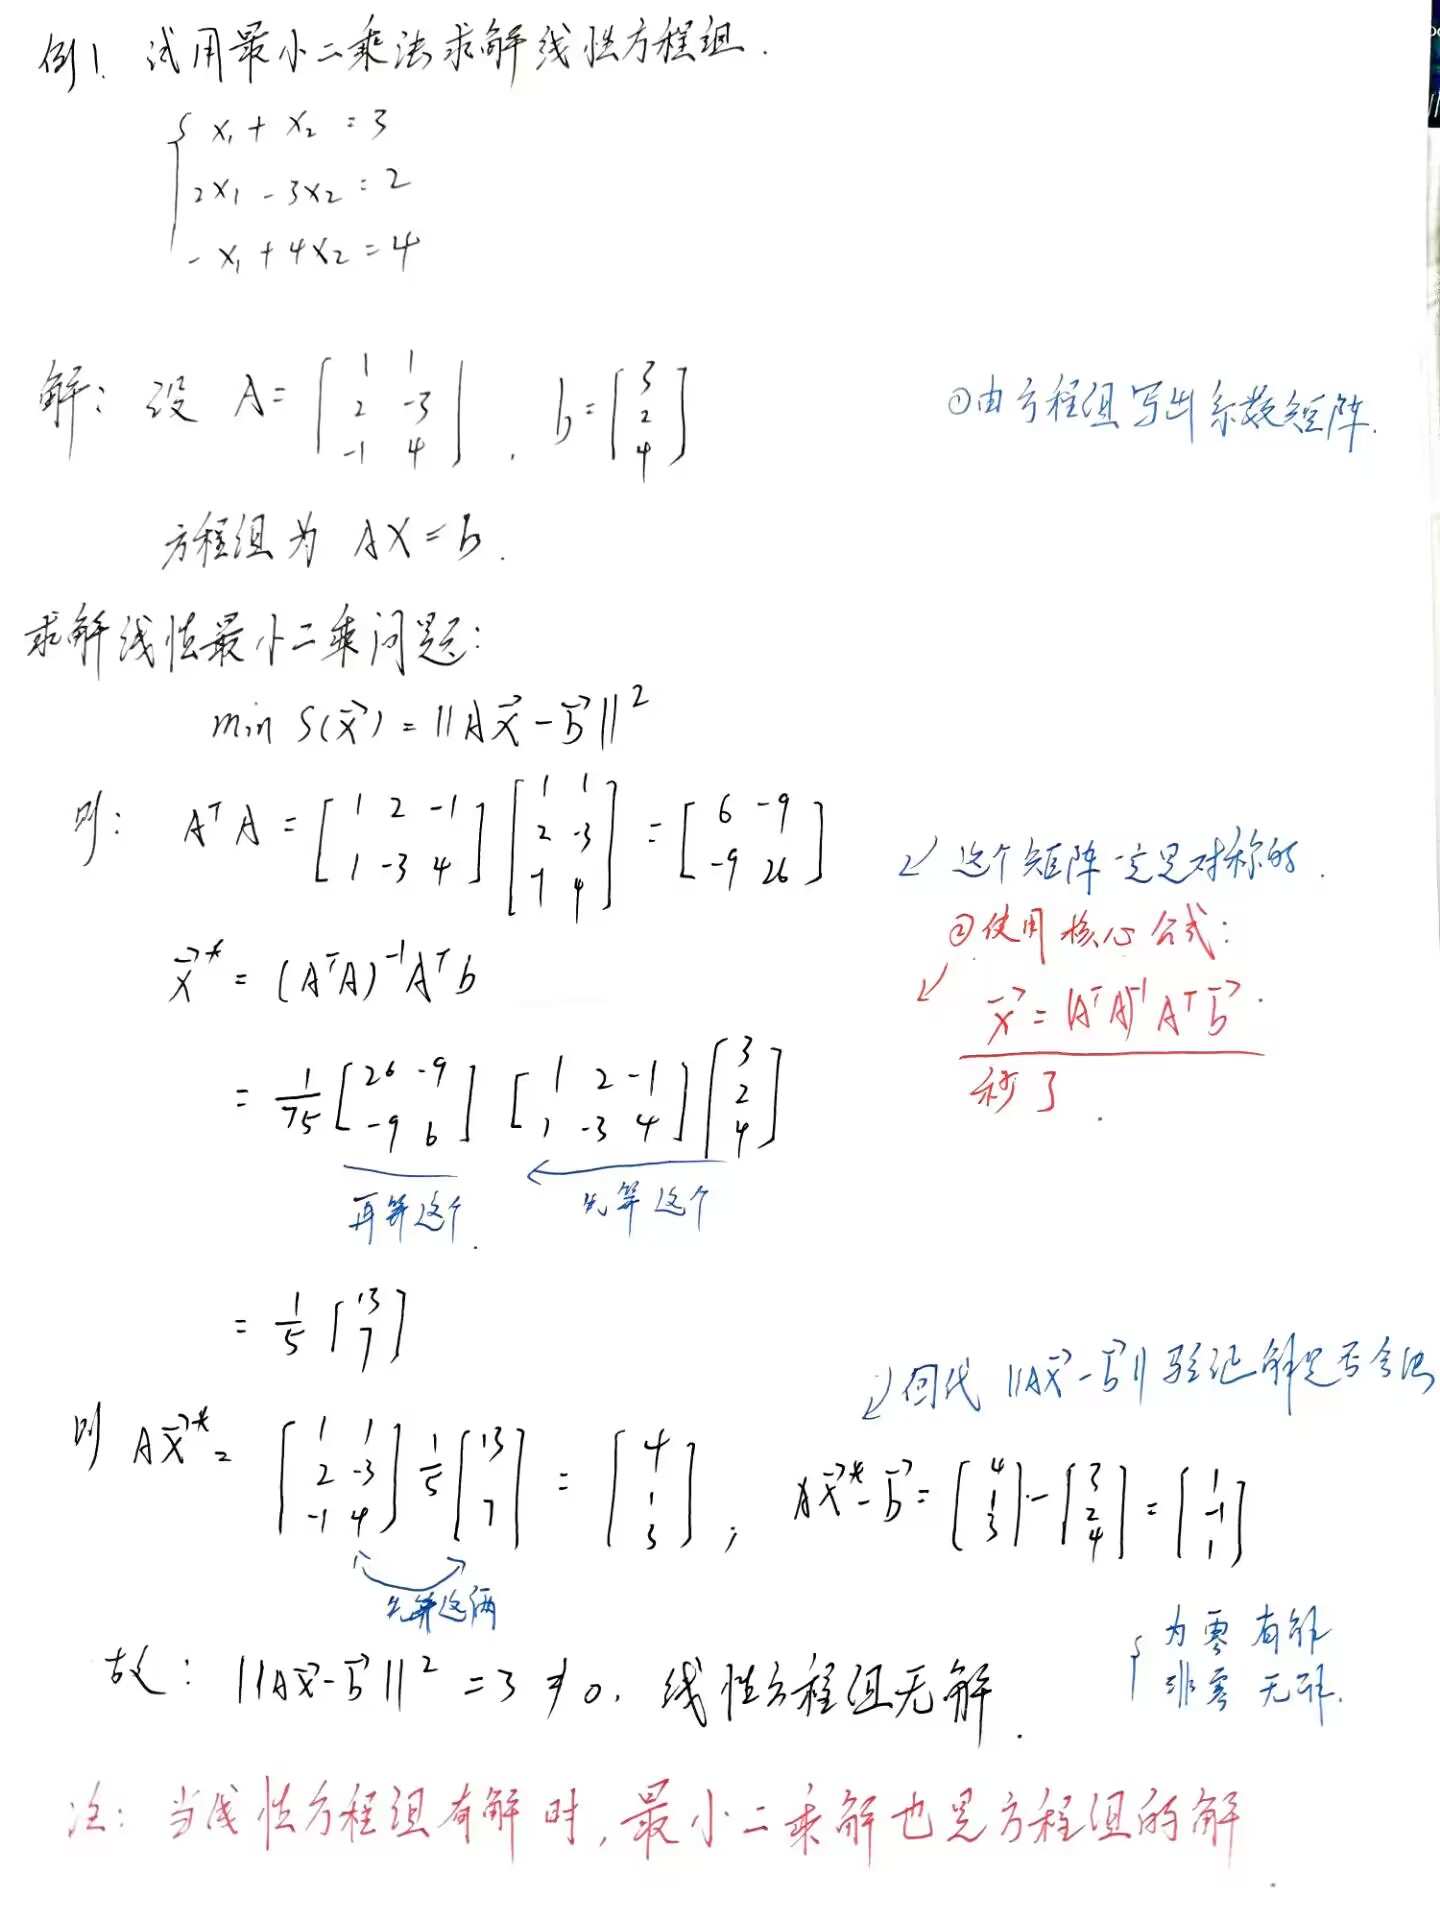 例1. 试用最小二乘法求解线性方程组.
{ x₁ + x₂ = 3
2x₁ - 3x₂ = 2
-x₁ + 4x₂ = 4
解: 设 A = [1 1; 2 -3; -1 4], b = [3; 2; 4]
①由方程组写出系数矩阵.
方程组为 AX = b.
求解线性最小二乘问题:
min S(x⃗) = ||Ax⃗ - b⃗||²
则: AᵀA = [1 2 -1; 1 -3 4] [1 1; 2 -3; -1 4] = [6 -9; -9 26]
↙ 这个矩阵一定是对称的.
②使用核心公式:
x⃗* = (AᵀA)⁻¹Aᵀb
↙ x⃗ = (AᵀA)⁻¹Aᵀb⃗.
秒了.
= 1/75 [26 -9; -9 6] [1 2 -1; 1 -3 4] [3; 2; 4]
再算这个. 先算这个
= 1/5 [13; 7]
↙ 回代 ||Ax⃗ - b⃗|| 验证解是否合理
则 Ax⃗* = [1 1; 2 -3; -1 4] 1/5 [13; 7] = [4; 1; 3]; Ax⃗* - b⃗ = [4; 1; 3] - [3; 2; 4] = [1; -1; 1]
先算这俩
{ 为零 有解
非零 无解.
故: ||Ax⃗ - b⃗||² = 3 ≠ 0, 线性方程组无解.
注: 当线性方程组有解时, 最小二乘解也是方程组的解.